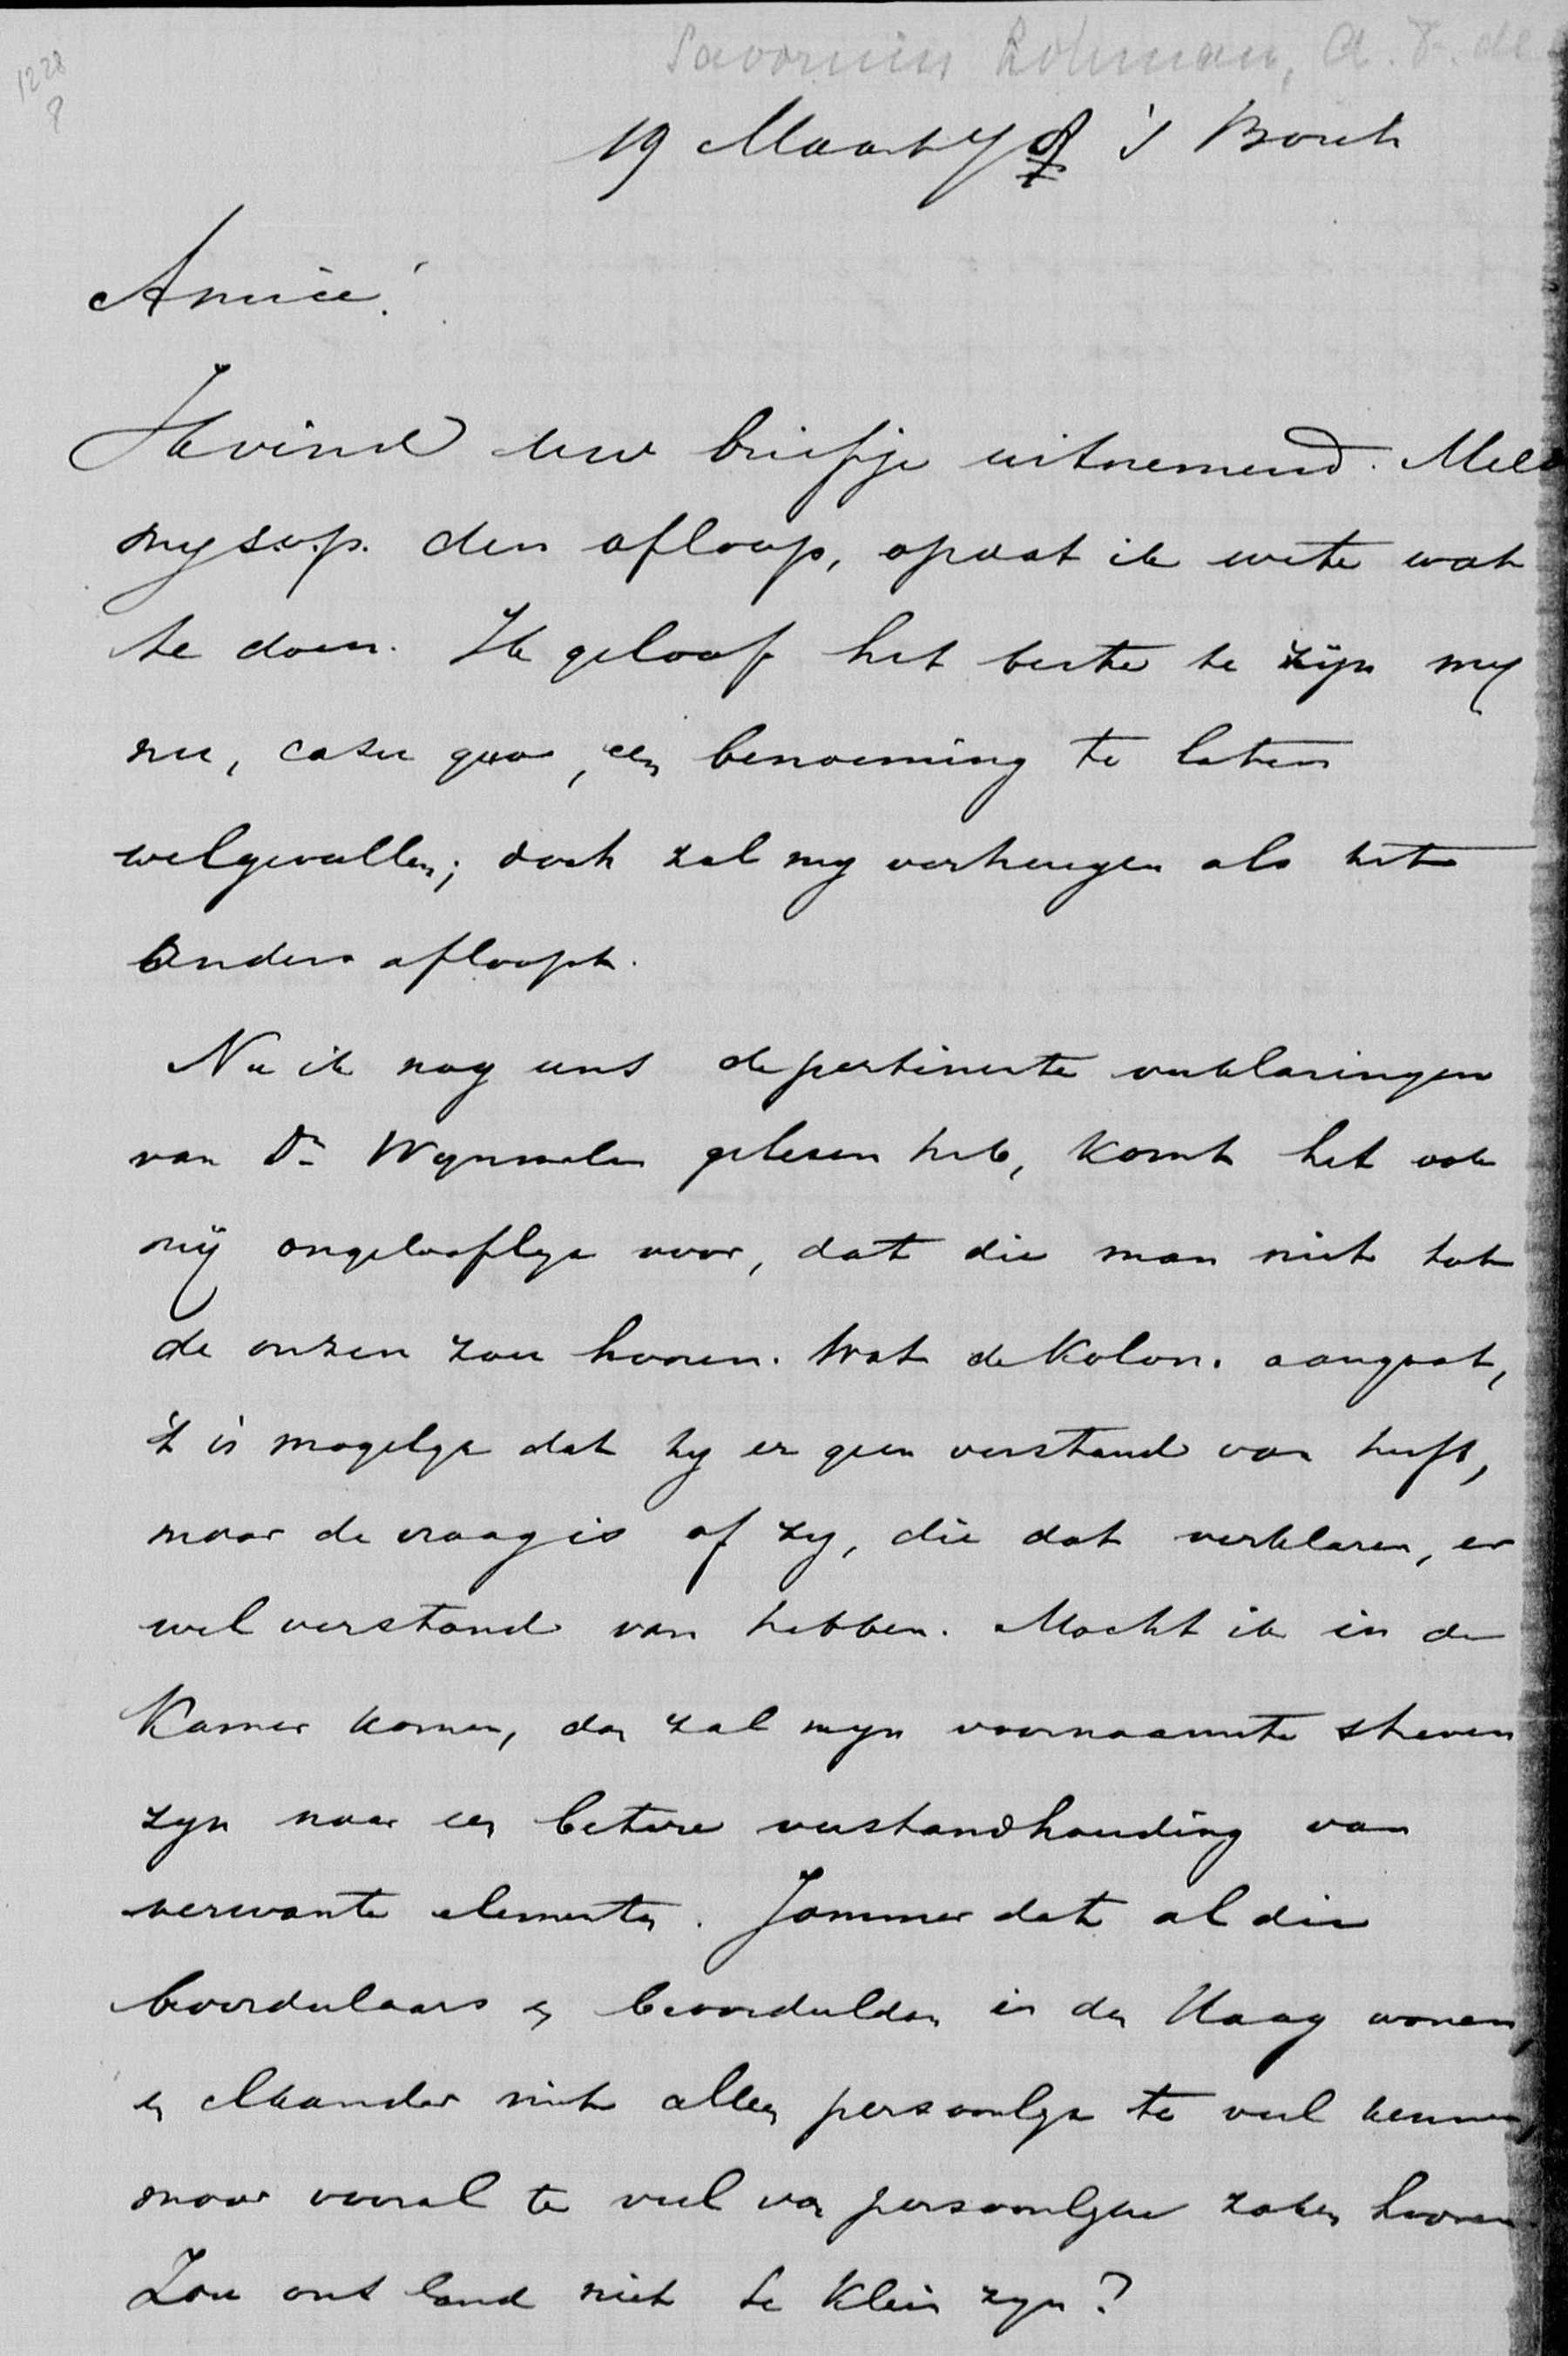 Savornin Lohman, A. F. de
1228
8
19 Maart 78 's Bosch
Amice!
Ik vind uw briefje uitnemend. Meld
my s.v.p. den afloop, opdat ik wete wat
te doen. Ik geloof het beste te zijn my
nu, casu quo, een benoeming te laten
welgevallen; doch zal my verheugen als het
anders afloopt.
Nu ik nog eens de pertinente verklaringen
van Dr Wynmalen gelezen heb, komt het ook
mij ongelooflyk voor, dat die man niet tot
de onzen zou hooren. Wat de Kolon. aangaat,
't is mogelyk dat hy er geen verstand van heeft,
maar de vraag is of zy, die dat verklaren, er
wel verstand van hebben. Mocht ik in de
Kamer komen, dan zal myn voornaamste streven
zyn naar een betere verstandhouding van
verwante elementen. Jammer dat al die
beoordelaars en beoordeelden in den Haag wonen,
en elkander niet alleen persoonlyk te veel kennen,
maar vooral te veel van persoonlyke zaken hooren.
Zou ons land niet te klein zyn?